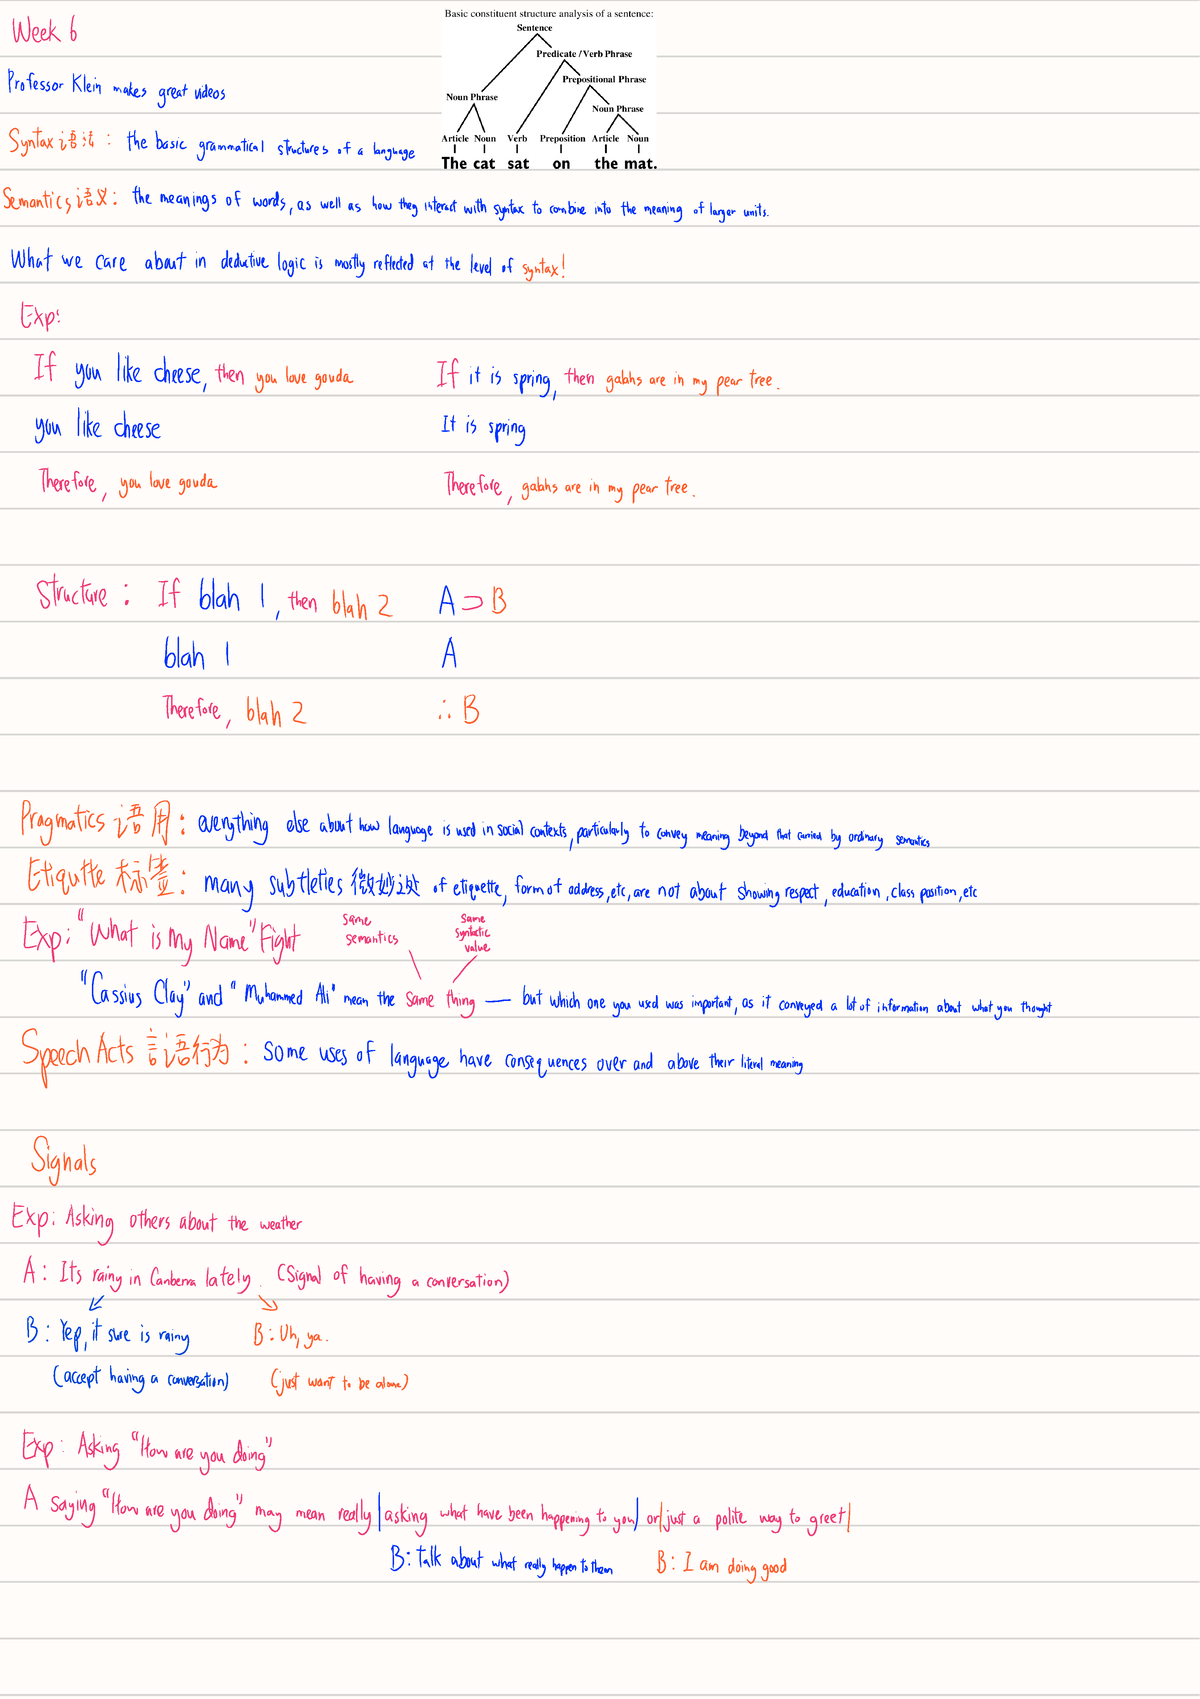 Week 6
Basic constituent structure analysis of a sentence:
Sentence
Predicate / Verb Phrase
Prepositional Phrase
Noun Phrase
Noun Phrase
Article Noun Verb Preposition Article Noun
The cat sat on the mat.
Professor Klein makes great videos
Syntax 语法 : the basic grammatical structures of a language
Semantics 语义 : the meanings of words, as well as how they interact with syntax to combine into the meaning of larger units.
What we care about in deductive logic is mostly reflected at the level of syntax!
Exp:
If you like cheese, then you love gouda
If it is spring, then galahs are in my pear tree.
you like cheese
It is spring
Therefore, you love gouda
Therefore, galahs are in my pear tree.
Structure : If blah 1, then blah 2
A ⊃ B
blah 1
A
Therefore, blah 2
∴ B
Pragmatics 语用 : everything else about how language is used in social contexts, particularly to convey meaning beyond that carried by ordinary semantics
Etiqutte 标签 : many subtleties 微妙之处 of etiquette, form of address, etc, are not about showing respect, education, class position, etc
Exp: "What is My Name" Fight
same semantics
same syntactic value
"Cassius Clay" and "Muhammed Ali" mean the same thing — but which one you used was important, as it conveyed a lot of information about what you thought
Speech Acts 言语行为 : Some uses of language have consequences over and above their literal meaning
Signals
Exp: Asking others about the weather
A : Its rainy in Canberra lately. (Signal of having a conversation)
B : Yep, it sure is rainy
B : Uh, ya.
(accept having a conversation)
(just want to be alone)
Exp : Asking "How are you doing"
A saying "How are you doing" may mean really |asking what have been happening to you| or |just a polite way to greet|
B : talk about what really happen to them
B : I am doing good